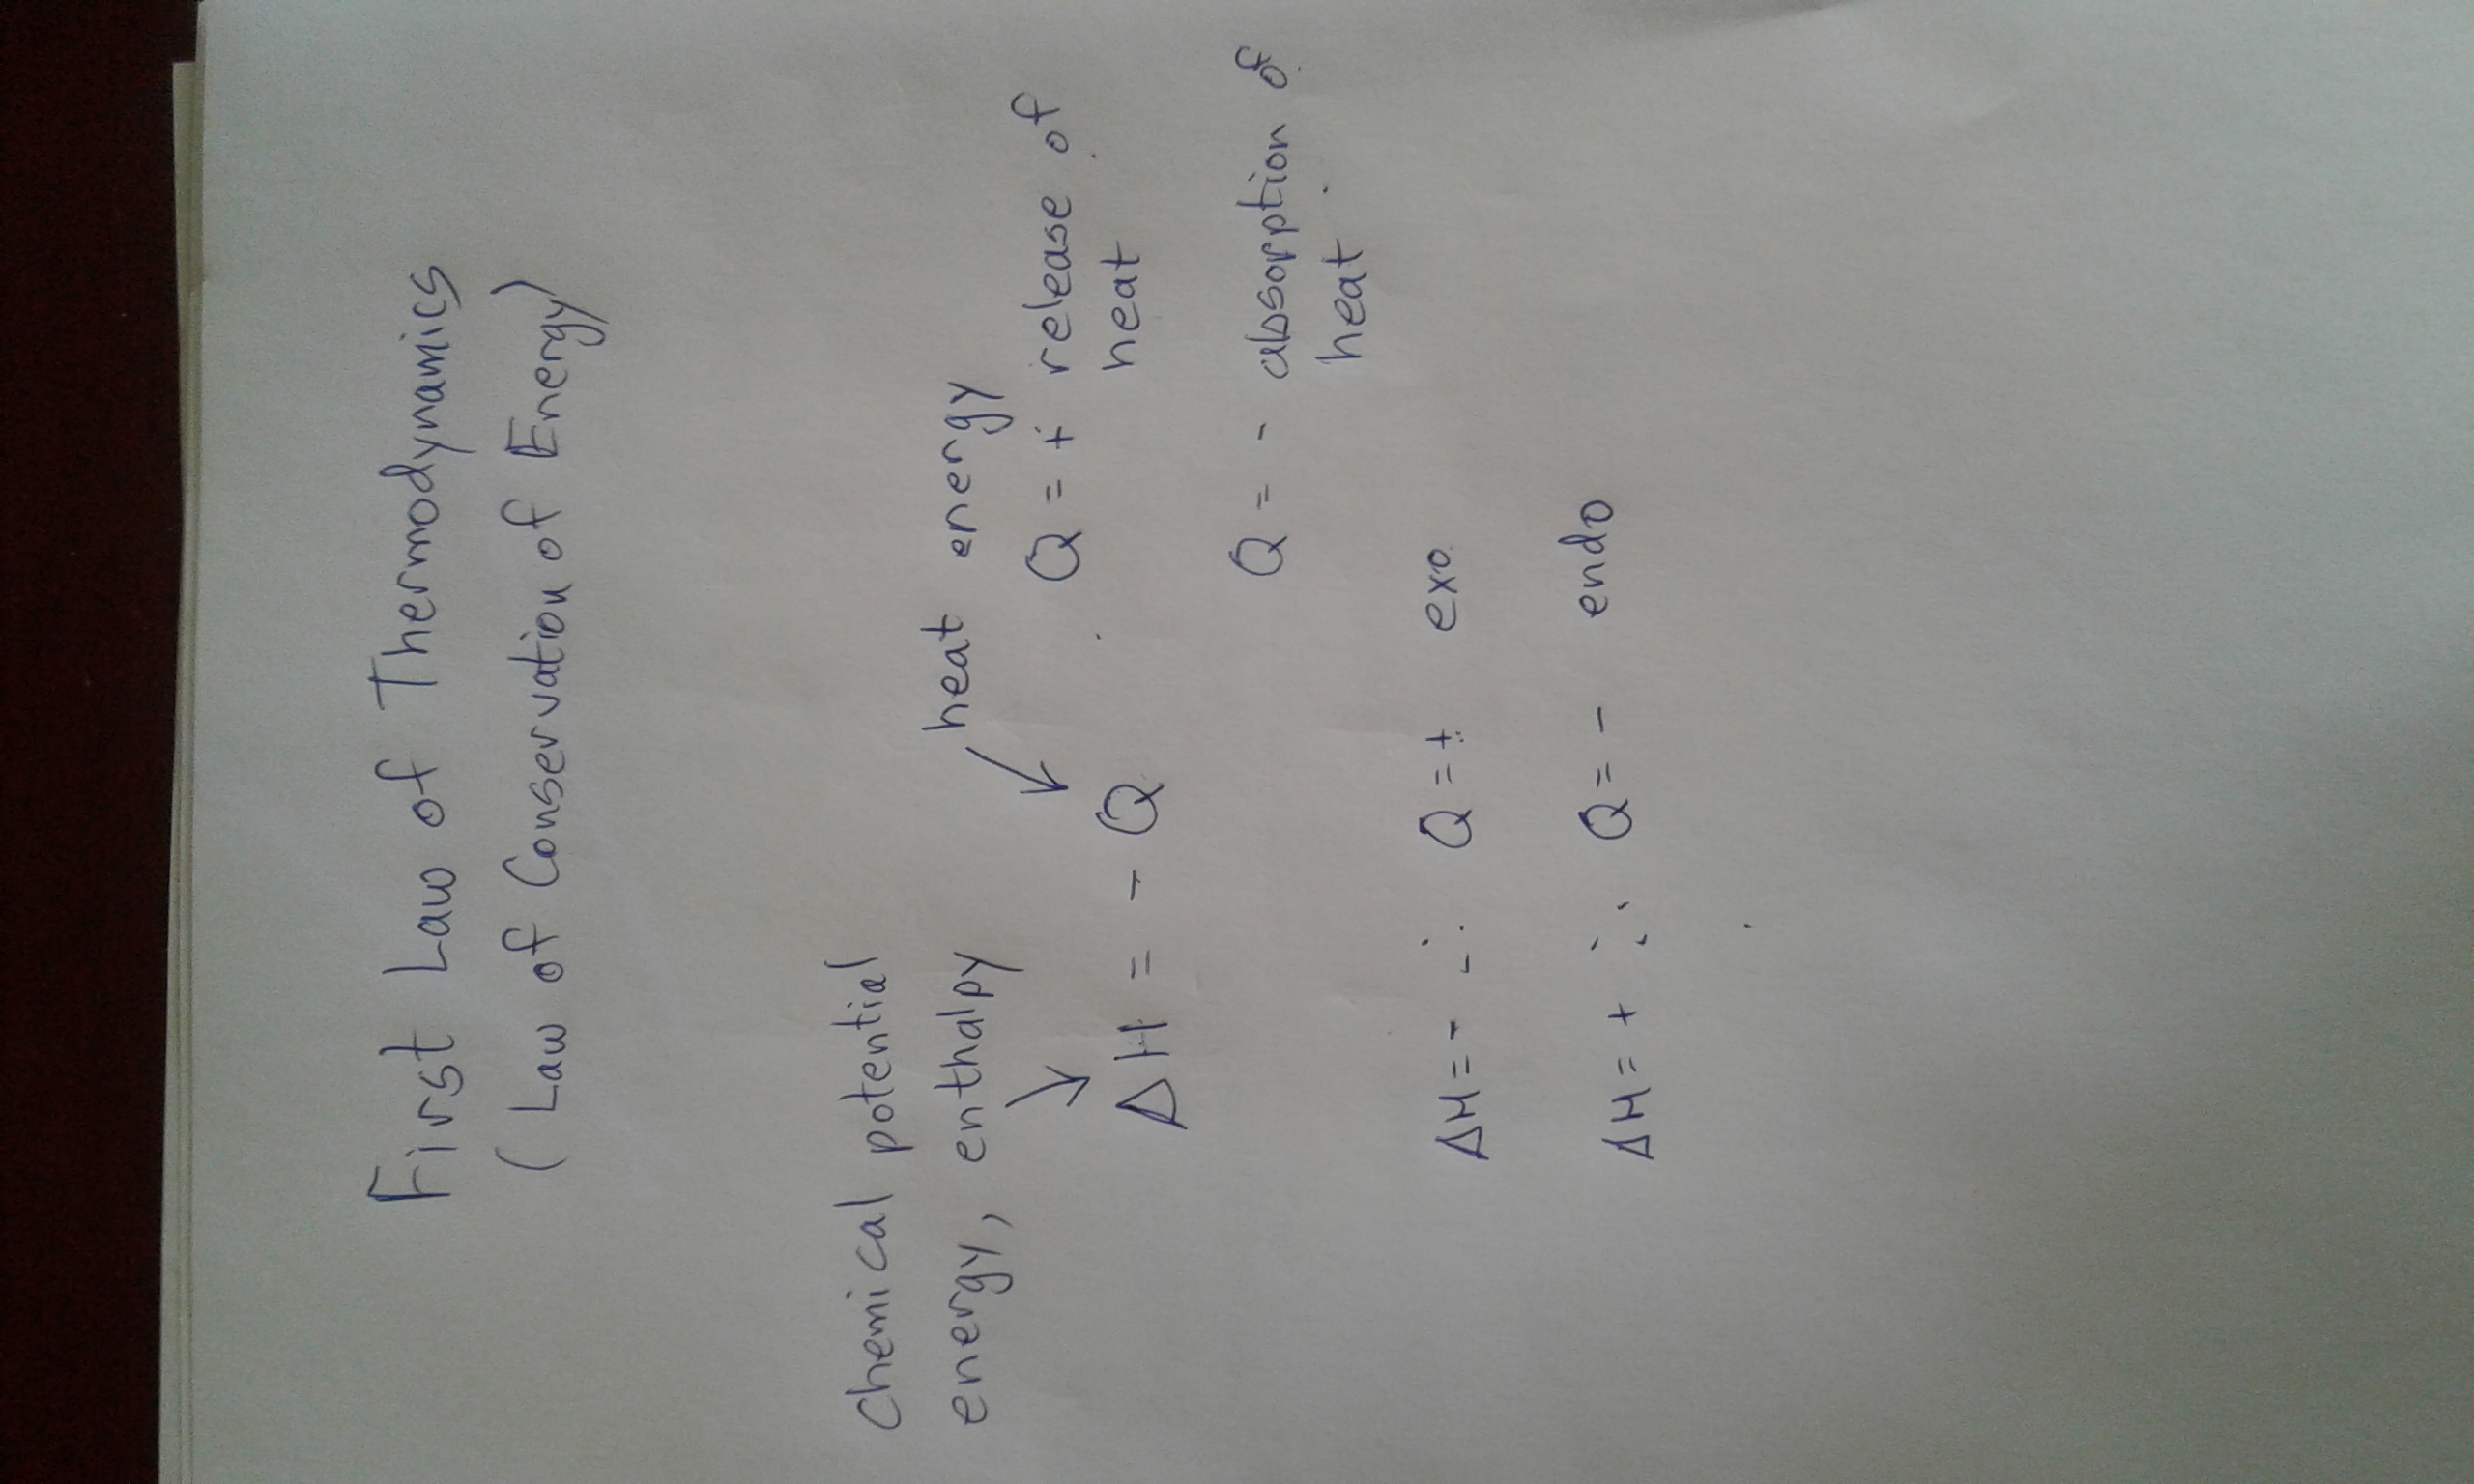 First Law of Thermodynamics
(Law of Conservation of Energy)
Chemical potential
energy, enthalpy
heat energy
ΔH = - Q
Q = + release of
heat
Q = - absorption of
heat
ΔH = - ∴ Q = + exo
ΔH = + ∴ Q = - endo